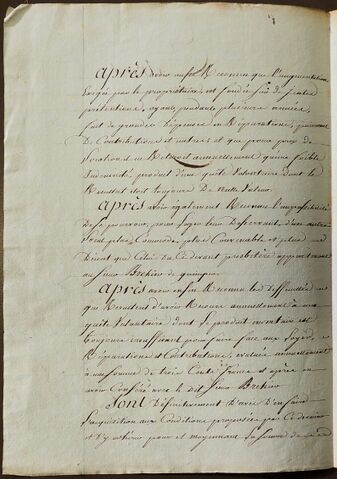 après avoir enfin Reconnu que l'augmentation
exigée par le propriétaire, est fondée sur de justes
prétentions, ayant pendant plusieurs années,
fait de grandes dépenses en Réparations, payement
De Contributions et autres et que pour prix de
location il ne Retiroit annuellement qu'une faible
Indemnité, produit d'une quête Volontaire dont le
Résultat étoit toujours De nulle Valeur.
après avoir également Reconnu l'impossibilité
De se pourvoir, pour Loger leur Desservant, d'un autre
local plus Commode, plus Convenable et plus
Décent que Celui du Ci devant presbitère appartenant
au Sieur de quimper
après avoir enfin Reconnu les Difficultés
que Résultent d'avoir Recours annuellement à une
quête Volontaire dont le produit monétaire est
toujours insuffisant pour faire face aux Loyers,
Réparations et Contributions, évalués annuellement
à une somme de trois Cents francs et après en
avoir Conféré avec le dit Sieur
Sont Définitivement D'avis D'en faire
l'acquisition aux Conditions proposées par Ce dernier
et D'y obtenir pour et moyennant la Somme de